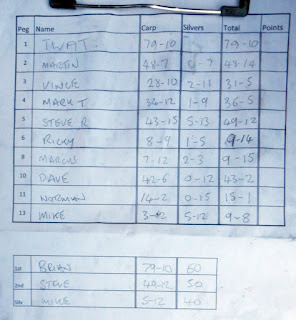 Peg Name Carp Silvers Total Points
1 TWAIT. 79-10 79-10
2 MARTIN 48-7 0-7 48-14
3 VINCE 28-10 2-11 31-5
4 MARK T. 34-12 1-9 36-5
5 STEVE R 43-15 5-13 49-12
6 RICKY 8-9 1-5 9-14
8 MARCUS 7-12 2-3 9-15
10 DAVE 42-6 0-12 43-2
11 NORMAN 14-2 0-15 15-1
13 MIKE 3-12 5-12 9-8
1st BRIAN 79-10 60
2nd STEVE 49-12 50
Sils MIKE 5-12 40